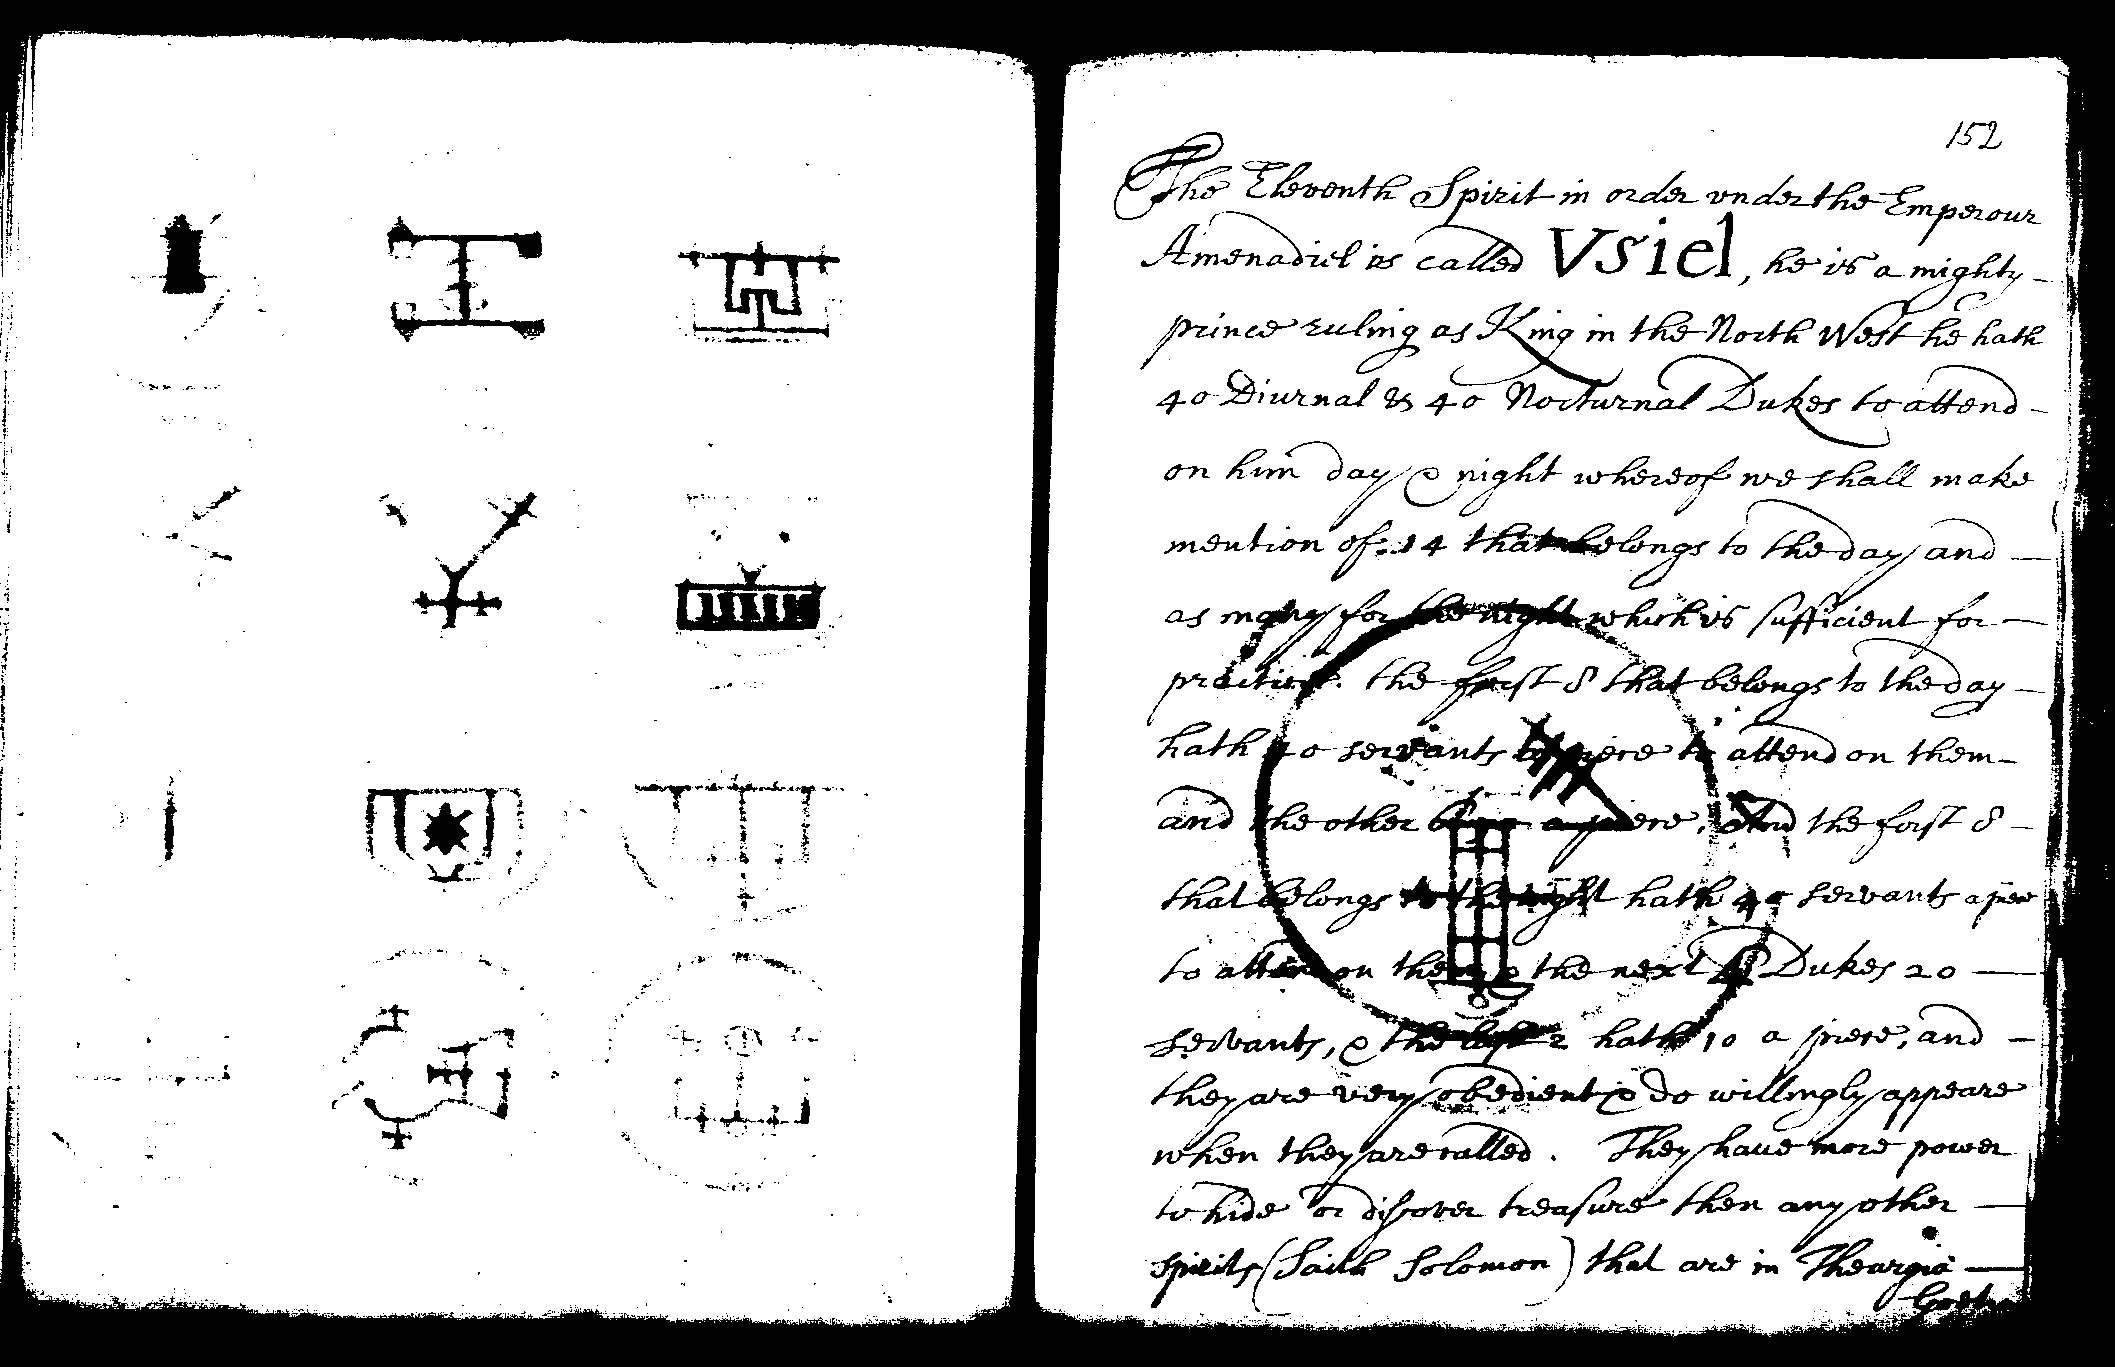 152
The Eleventh Spirit in order vnder the Emperour
Amenadiel is called Vsiel, he is a mighty
prince ruling as King in the North West he hath
40 Diurnal & 40 Nocturnal Dukes to attend
on him day & night whereof we shall make
mention of. 14 that belongs to the day and
as many for the night which is sufficient for
practice. the first 8 that belongs to the day
hath 40 servants a piece to attend on them
and the other a piece, And the forst 8
that belongs to the night hath 40 servants a piece
to attend on them & the next 4 Dukes 20
servants, & the last 2 hath 10 a piece, and
they are very obedient & do willingly appeare
when they are called. They have more power
to hide or discover treasure then any other
spirits (Saith Solomon) that are in Theurgia
Goetia